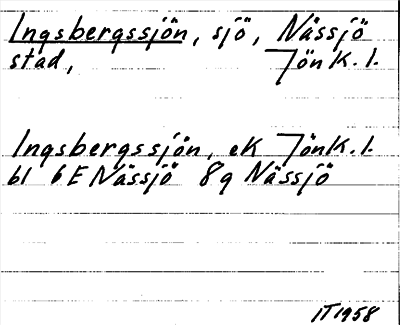 Ingsbergssjön, sjö, Nässjö
stad, Jönk. l.
Ingsbergssjön, ek Jönk. l.
bl 6E Nässjö 8g Nässjö
IT 1958